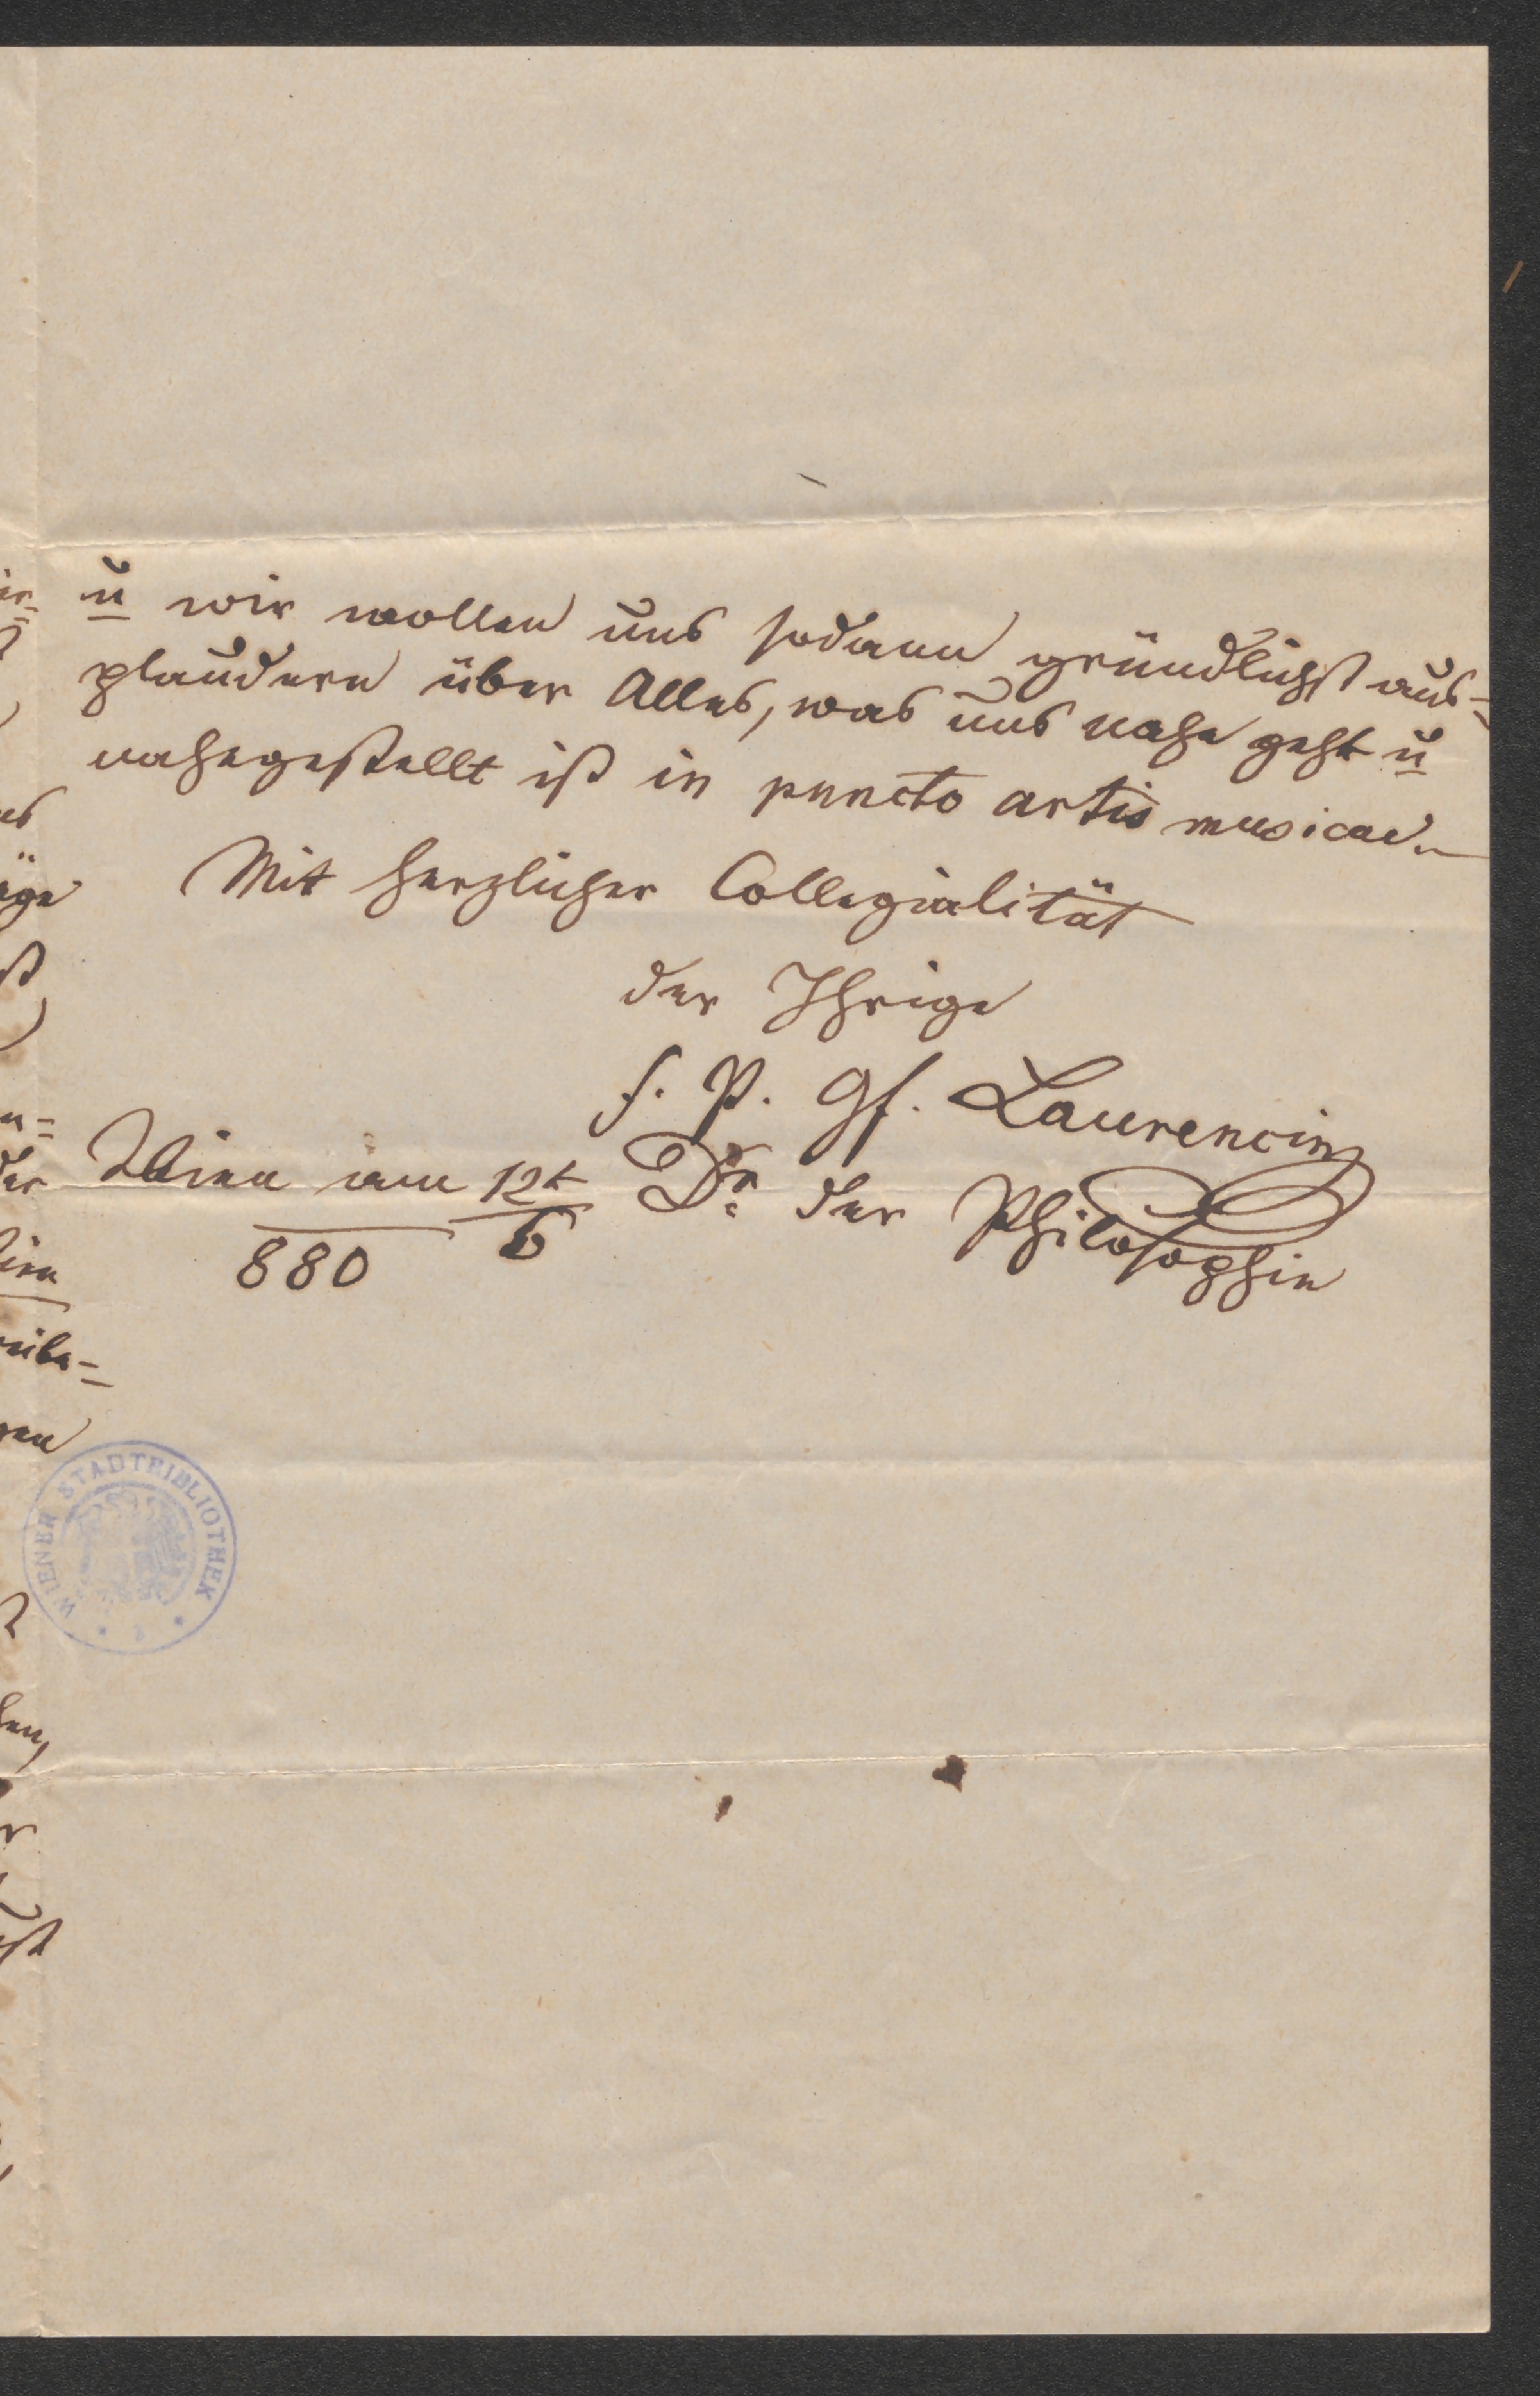 u wir wollen uns sodann gründlichst aus=
plaudern über Alles, was uns nahe geht u
nahegestellt ist in puncto artis musicae.
Mit herzlicher Collegialität
der Ihrige
F. P. Gf. Laurencin
Dr. der Philosophie
Wien am 12t
6
880
WIENER STADTBIBLIOTHEK